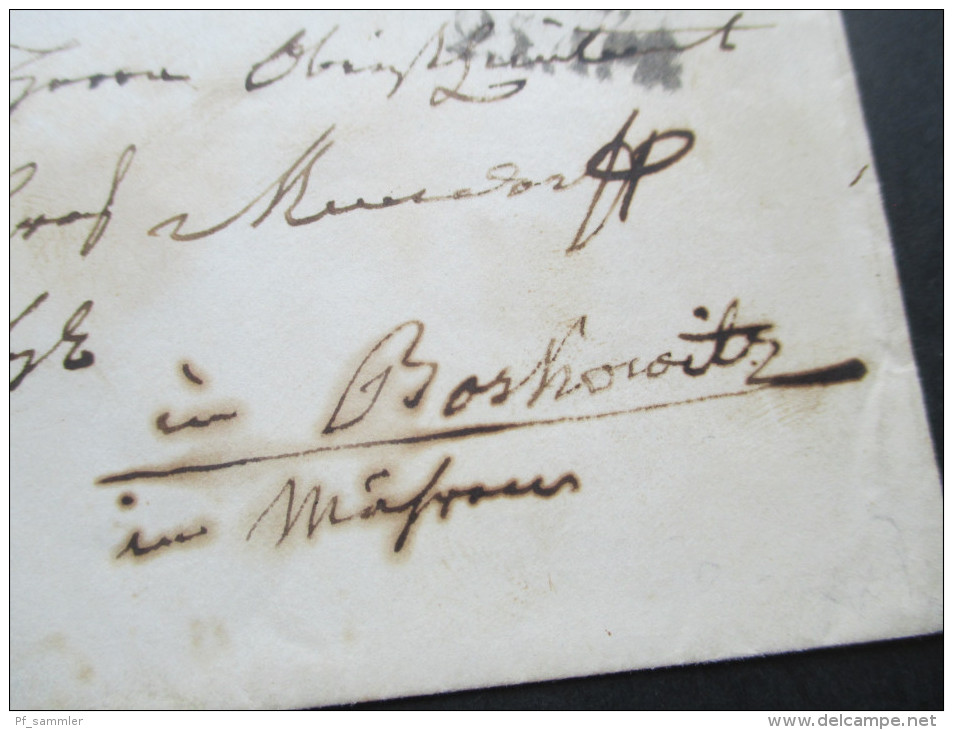 Herrn Obristlieutenant
Graf Mensdorff
in Boskowitz
in Mähren
Pf_sammler
www.delcampe.net